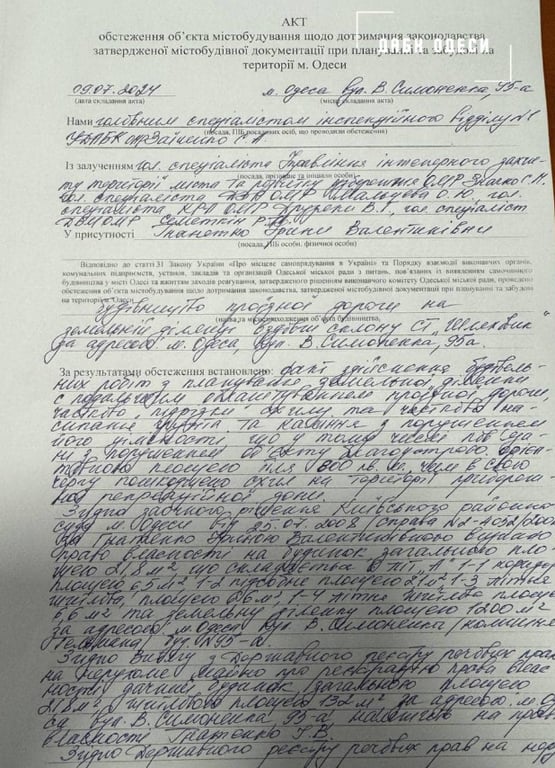 ДАБК ОДЕСИ
АКТ
обстеження об'єкта містобудування щодо дотримання законодавства
затвердженої містобудівної документації при плануванні та забудові на
території м. Одеси
09.07.2024 м. Одеса вул. В. Симоненка, 95-а
(дата складання акта) (місце складання акта)
Нами головним спеціалістом інспекційного відділу №1
УДАБК
(посада, ПІБ посадових осіб, що проводили обстеження)
Із залученням гол. спеціаліста Управління інженерного захис-
(посада, прізвище та ініціали особи)
ту території міста та розвитку узбережжя ОМР
гол. спеціаліста ОМР гол.
спеціаліста ОМР гол. спеціаліст
У присутності Гнатенко Ірини Валентинівни
(посада, ПІБ особи, фізичної особи)
Відповідно до статті 31 Закону України «Про місцеве самоврядування в Україні» та Порядку взаємодії виконавчих органів,
комунальних підприємств, установ, закладів та організацій Одеської міської ради з питань, пов'язаних із виявленням самочинного
будівництва у місті Одесі та вжиттям заходів реагування, затвердженого рішенням виконавчого комітету Одеської міської ради, проведено
обстеження об'єкта містобудування щодо дотримання законодавства, затвердженої містобудівної документації при плануванні та забудові
на території м. Одеси
будівництво проїзної дороги на
(назва та місцезнаходження об'єкта будівництва,
земельній ділянці вздовж схилу СТ
за адресою: м. Одеса, вул. В. Симоненка, 95а.
За результатами обстеження встановлено: факт здійснення будівель-
них робіт з планування земельної ділянки
с подальшим влаштуванням проїзної дороги,
частково підрізки схилу та часткове на-
сипання ґрунта та каміння з порушенням
його цілісності, що у тому числі
ні з порушенням об'єкту благоустрою. орієн-
товною площею біля 800 кв. м., чим в свою
чергу пошкоджено схил на території прибереж-
ної рекреаційної зони.
Згідно заочного рішення Київського районного
суду м. Одеси від 25.07.2008 (справа №2-4052/2008
за Гнатенко Іриною Валентинівною визнано
право власності на будинок загального пло
щею 21,8 м² що складається з літ "А" 1-1 коридор
площею 6,5 м² 1-2 підсобне площею 2,1 м² 1-3 літня
житло, площею 6,6 м², 1-4 літнє житло площею
6,6 м² та земельну ділянку площею 1200 м²
за адресою м. Одеса вул. В. Симоненка (колишня
95-а.
Згідно Витягу з Державного реєстру речових прав
на нерухоме майно про реєстрацію права влас-
ності дачний будинок загальною площею
21,8 м², житловою площею 13,2 м² за адресою: м. О-
са, вул. В. Симоненка, 95-а, належить на праві
власності Гнатенко І.В.
Згідно Державного реєстру речових прав на нер